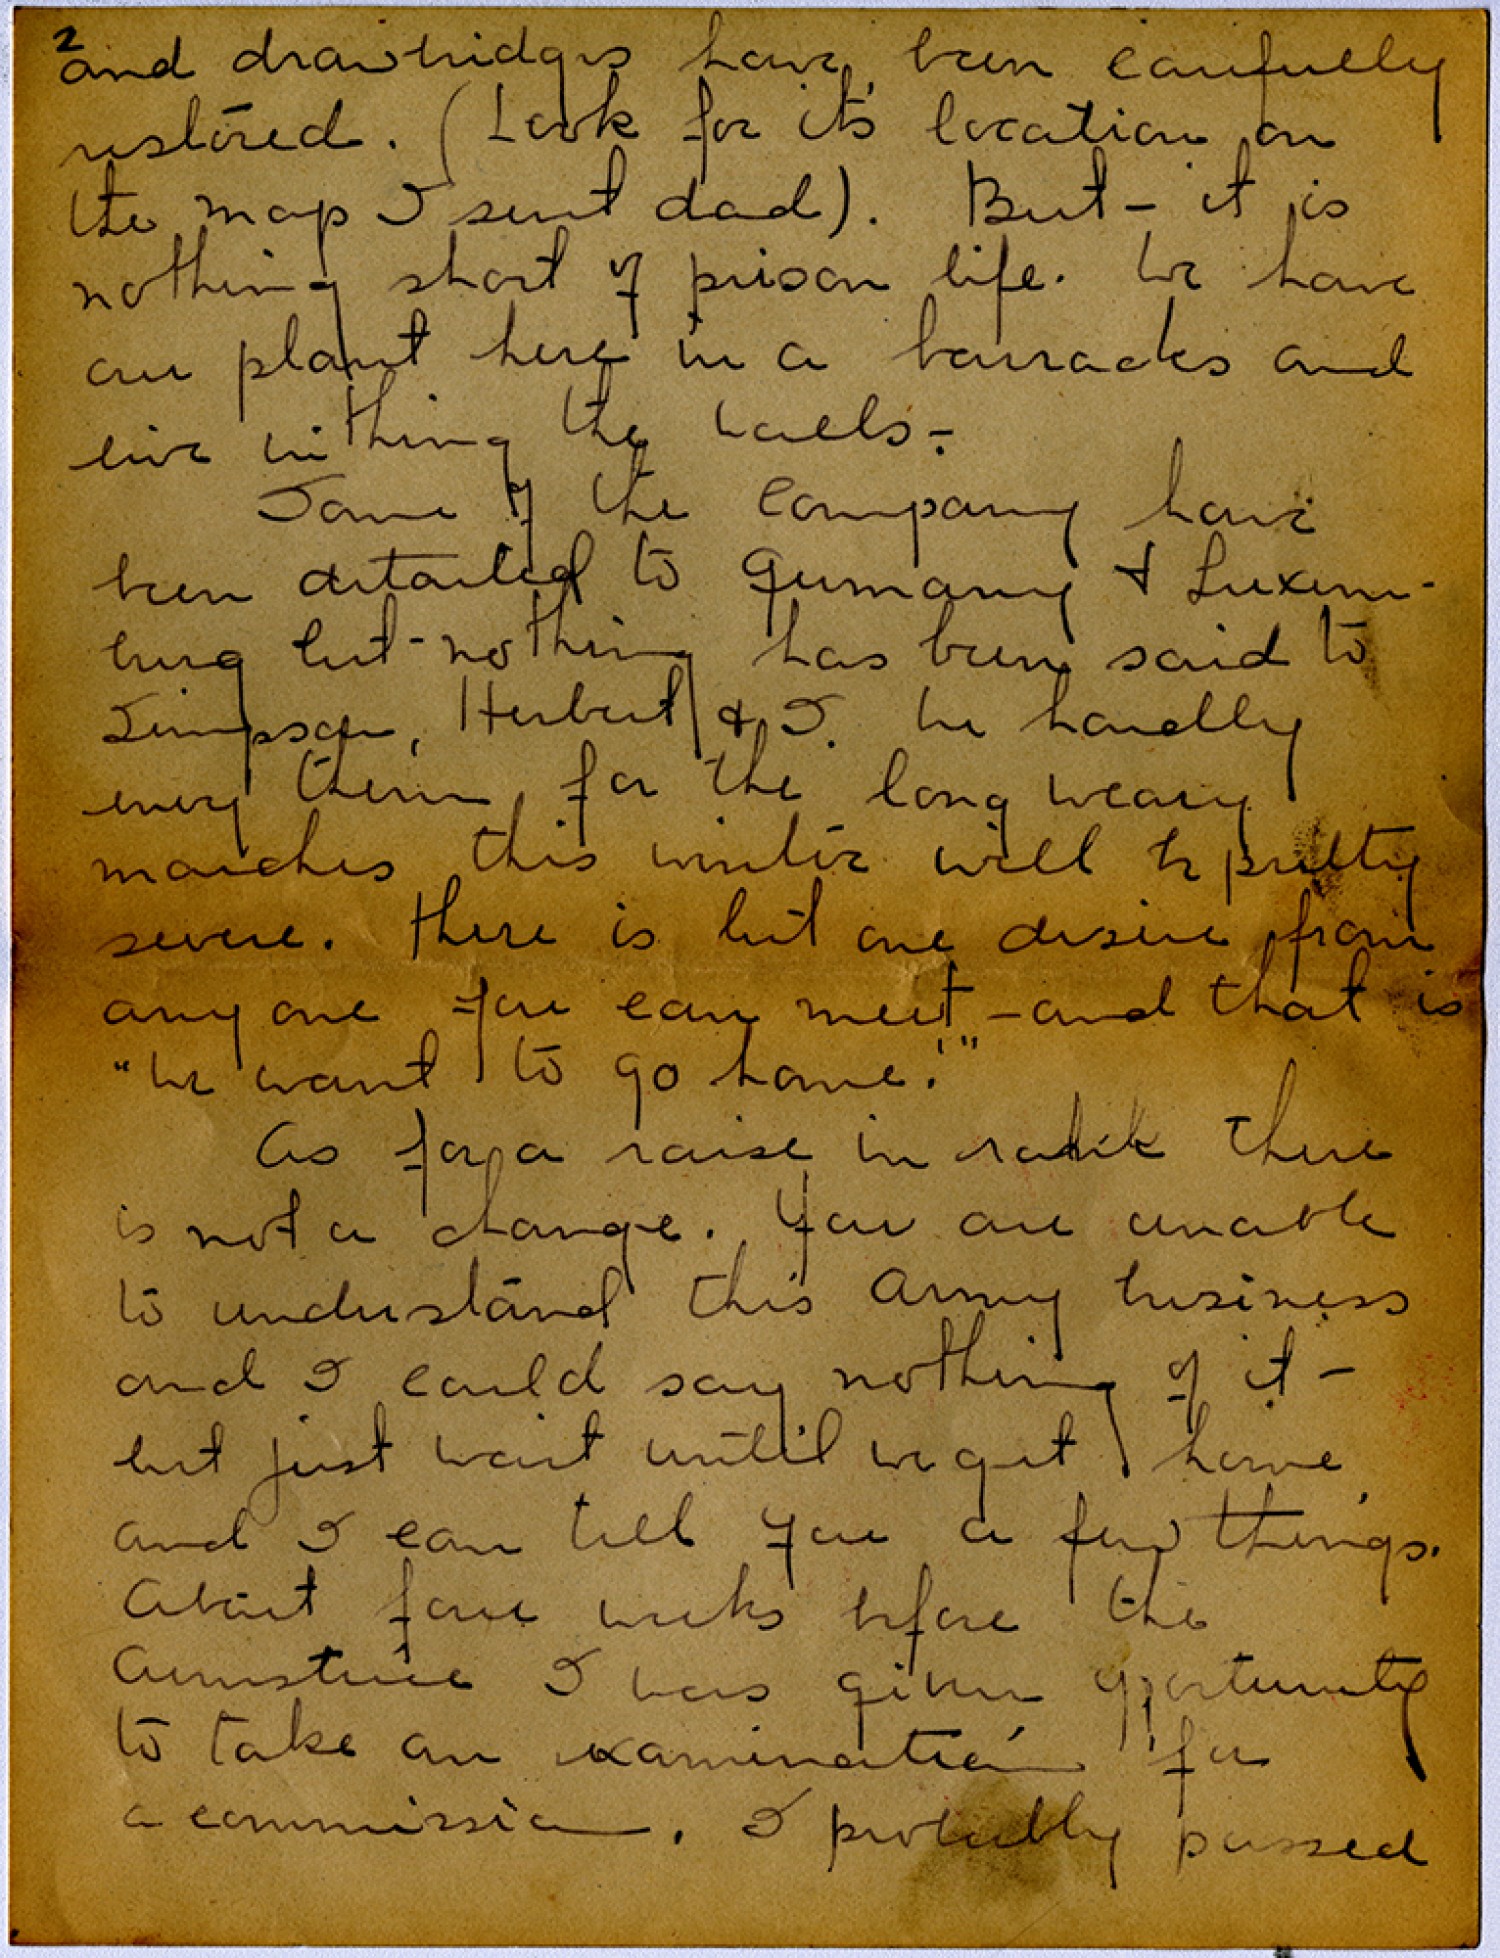 2
and drawbridges have been carefully
restored. (Look for it's location on
the map I sent dad). But - it is
nothing short of prison life. We have
our plant here in a barracks and
live withing the walls -
Some of the company have
been detailed to Germany & Luxem-
burg but nothing has been said to
Simpson, Herbert & I. We hardly
envy them for the long weary
marches this winter will be pretty
severe. There is but one desire from
anyone you can meet - and that is
"We want to go home!"
As for a raise in rank there
is not a change. You are unable
to understand this army business
and I could say nothing of it -
but just wait until we get home,
and I can tell you a few things.
About four weeks before the
Armistice I was given opportunity
to take an examination for
a commission. I probably passed